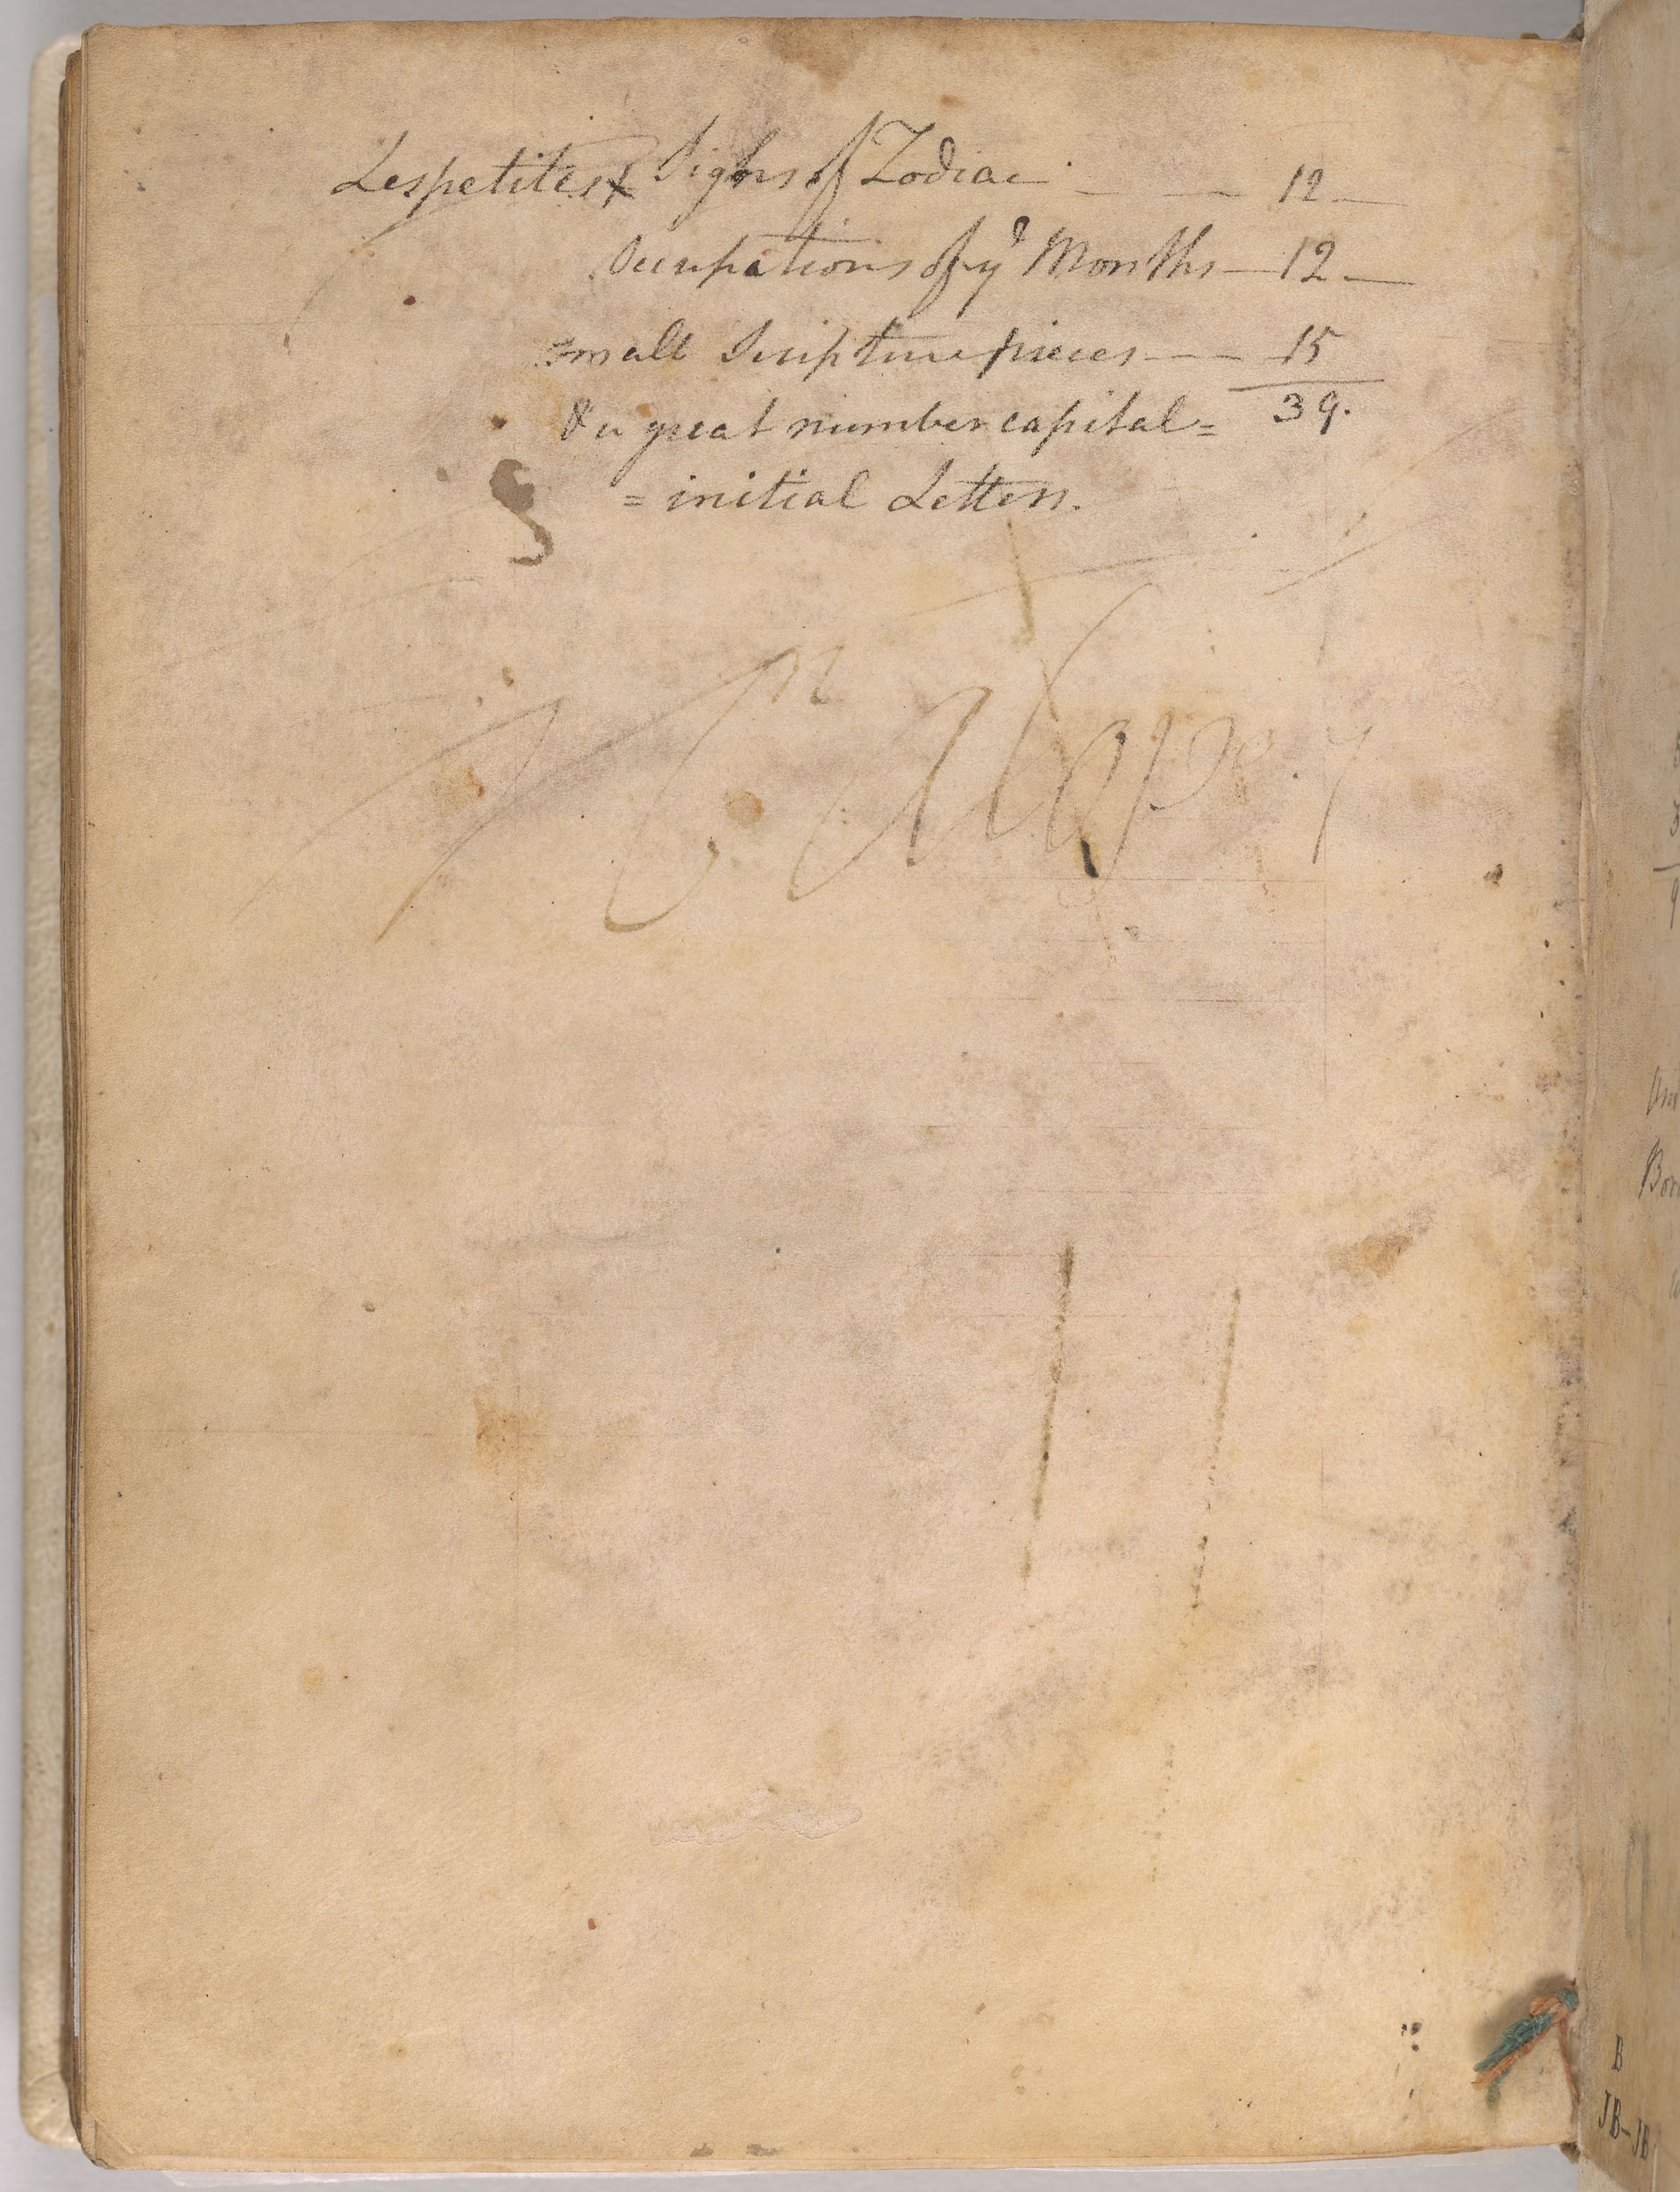 Les petites Signs of Zodiac - — 12 —
Occupations of yᵉ Months — 12 —
small Scripture pieces — — 15
& a great number capital = 39.
= initial Letters.
B
JB-JB